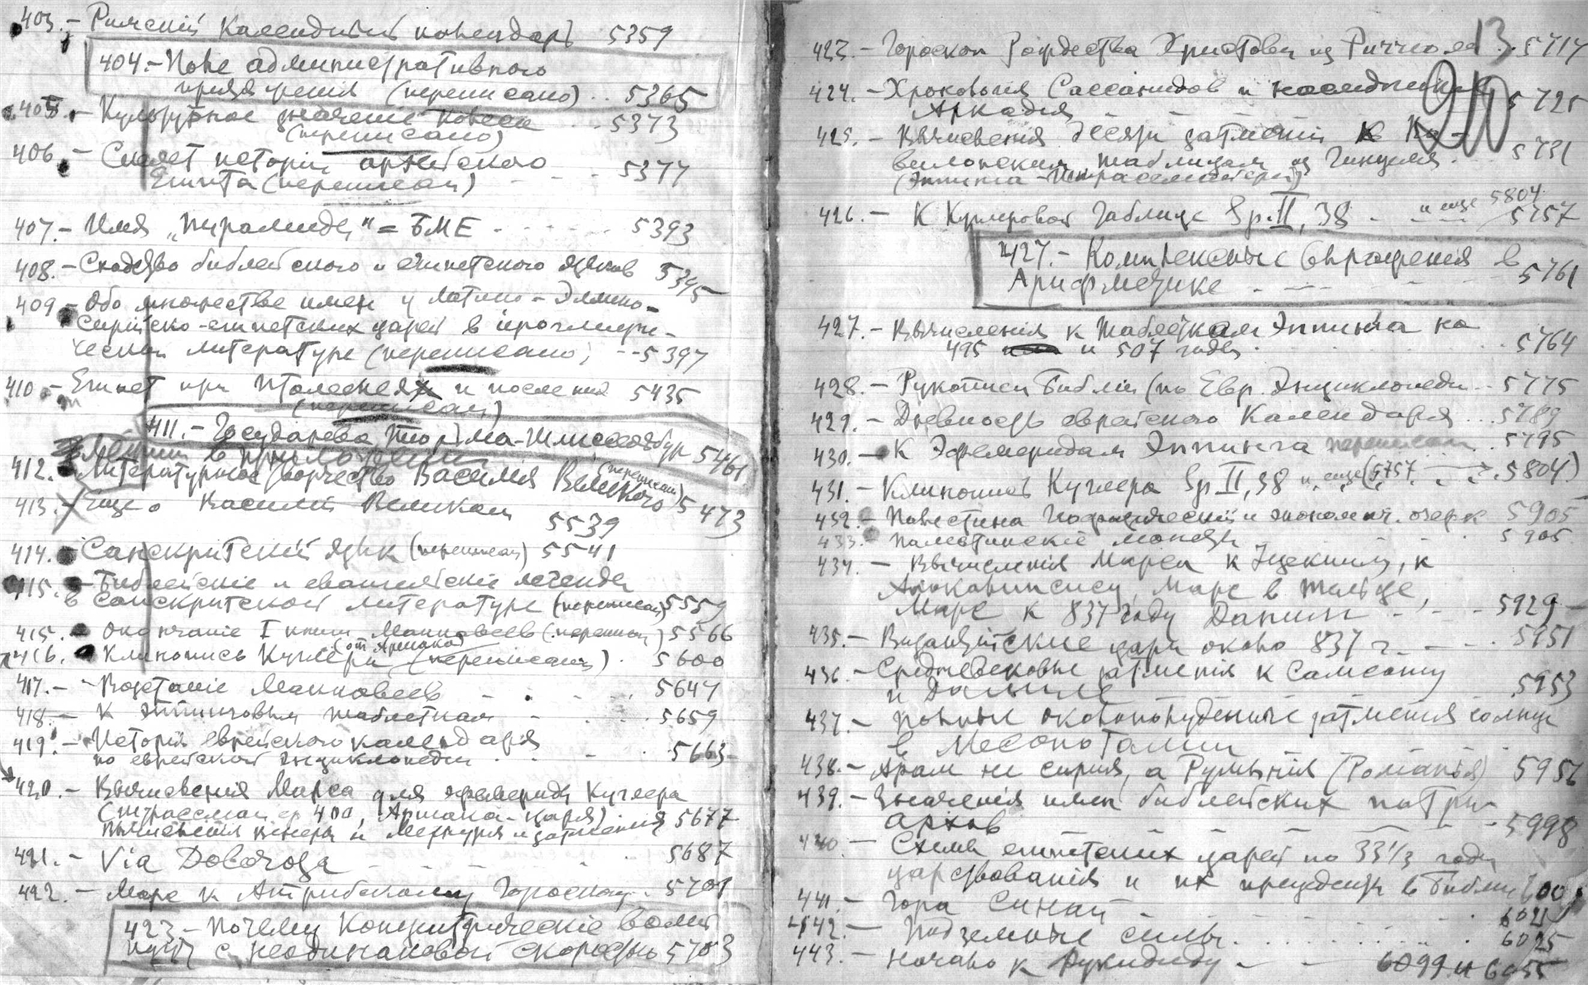 403. - Римскiй Календарь 5359
404. - Поле административного
(переписано) .. 5365
405. - Культурное значенiе
(переписано) ... 5373
406. - Скелет исторiи арабского
Египта (переписан) - - 5377
407. - Имя „пирамида" = БМЕ - - - - 5393
408. - Сходство библейского и египетского языков 5395
409 - Обо множестве имен у Латино-Эллино-
Сирiйско-египетских царей в iероглифи-
ческой литературе (переписано) -- 5397
410. - Египет при Птолемеях и после них 5435
(переписан)
411. - Государева Тюрьма-Шлиссельбург 5461
412. - Литературное творчество Василия Великого (переписан) 5473
413. Еще о Василiи Великом
5539
414. Санскритскiй язык (переписан) 5541
415. - Библейскiе и евангельскiе легенды
в санскритской литературе (переписан) 5559
415. Окончанiе I книги Маккавеев (переписан) 5566
416. Клинопись Куглера (переписан) . 5600
417. - Возстанiе Маккавеев - - - 5647
418. - К Эппинговым таблеткам - - 5659
419. - Исторiя еврейского календаря
по еврейской энциклопедiи . . . 5663
420. - Вычисленiя Марса для эфемерид Куглера
(Страссмайер 400, Аршака-царя)
вычисленiя Венеры и Меркурiя и затменiя 5677
421. - Via Dolorosa - - - 5687
422. - Марс к Атрибскому Гороскопу . 5701
423 - Почему Концентрическiе волны
идут с неодинаковой скоростью 5703
13
210
423. - Гороскоп Рождества Христова из Риччиоли . 5717
424. - Хронологiя Сассанидов и наследники
Аркадiя - - - 5725
425. - Вычисленiя десяти затменiй к Ва-
вилонским таблицам из Гинцеля . . 5731
(Эппинга-Штрассмайера)
426. - К Куглеровой Таблице Sp. II, 38 . и еще 5804
5757
427. - Комплексные Выраженiя в
Арифметике - - - 5761
427. - Вычисленiя к таблеткам Эппинга на
495 и 507 годы . . . 5764
428. - Рукописи Библiи (по Евр. Энциклопедiи .. 5775
429. - Древность еврейского Календаря ... 5789
430. - К Эфемеридам Эппинга переписан 5795
431. - Клинопись Куглера Sp II, 38 и еще (5757 5804)
432. - Палестина Географическiй и экономич. очерк 5905
433. Палестинскiе 5905
434. - Вычисленiя Марса к Iезекiилу, к
Апокалипсису, Марс в Тельце,
Марс к 837 году Данiил - - 5929
435. - Византiйские цари около 837 г. - - 5951
436. - Средневековые затменiя к Самсону
и Данiилу 5953
437. - Полные околополуденные затменiя солнца
в Месопотамiи
438. - Арам не сирiя, а Румынiя (Романiя) 5956
439. - Значенiя имен библейских патри-
архов - - - 5998
440. - Схема египетских царей по 33 1/3 года
царствованiя и их прецеденты в Библiи
441. - Гора Синай - . . . 6021
442. - Подземные силы . . . . 6025
443. - Начало к Фукидиду - - 6099 и 6055